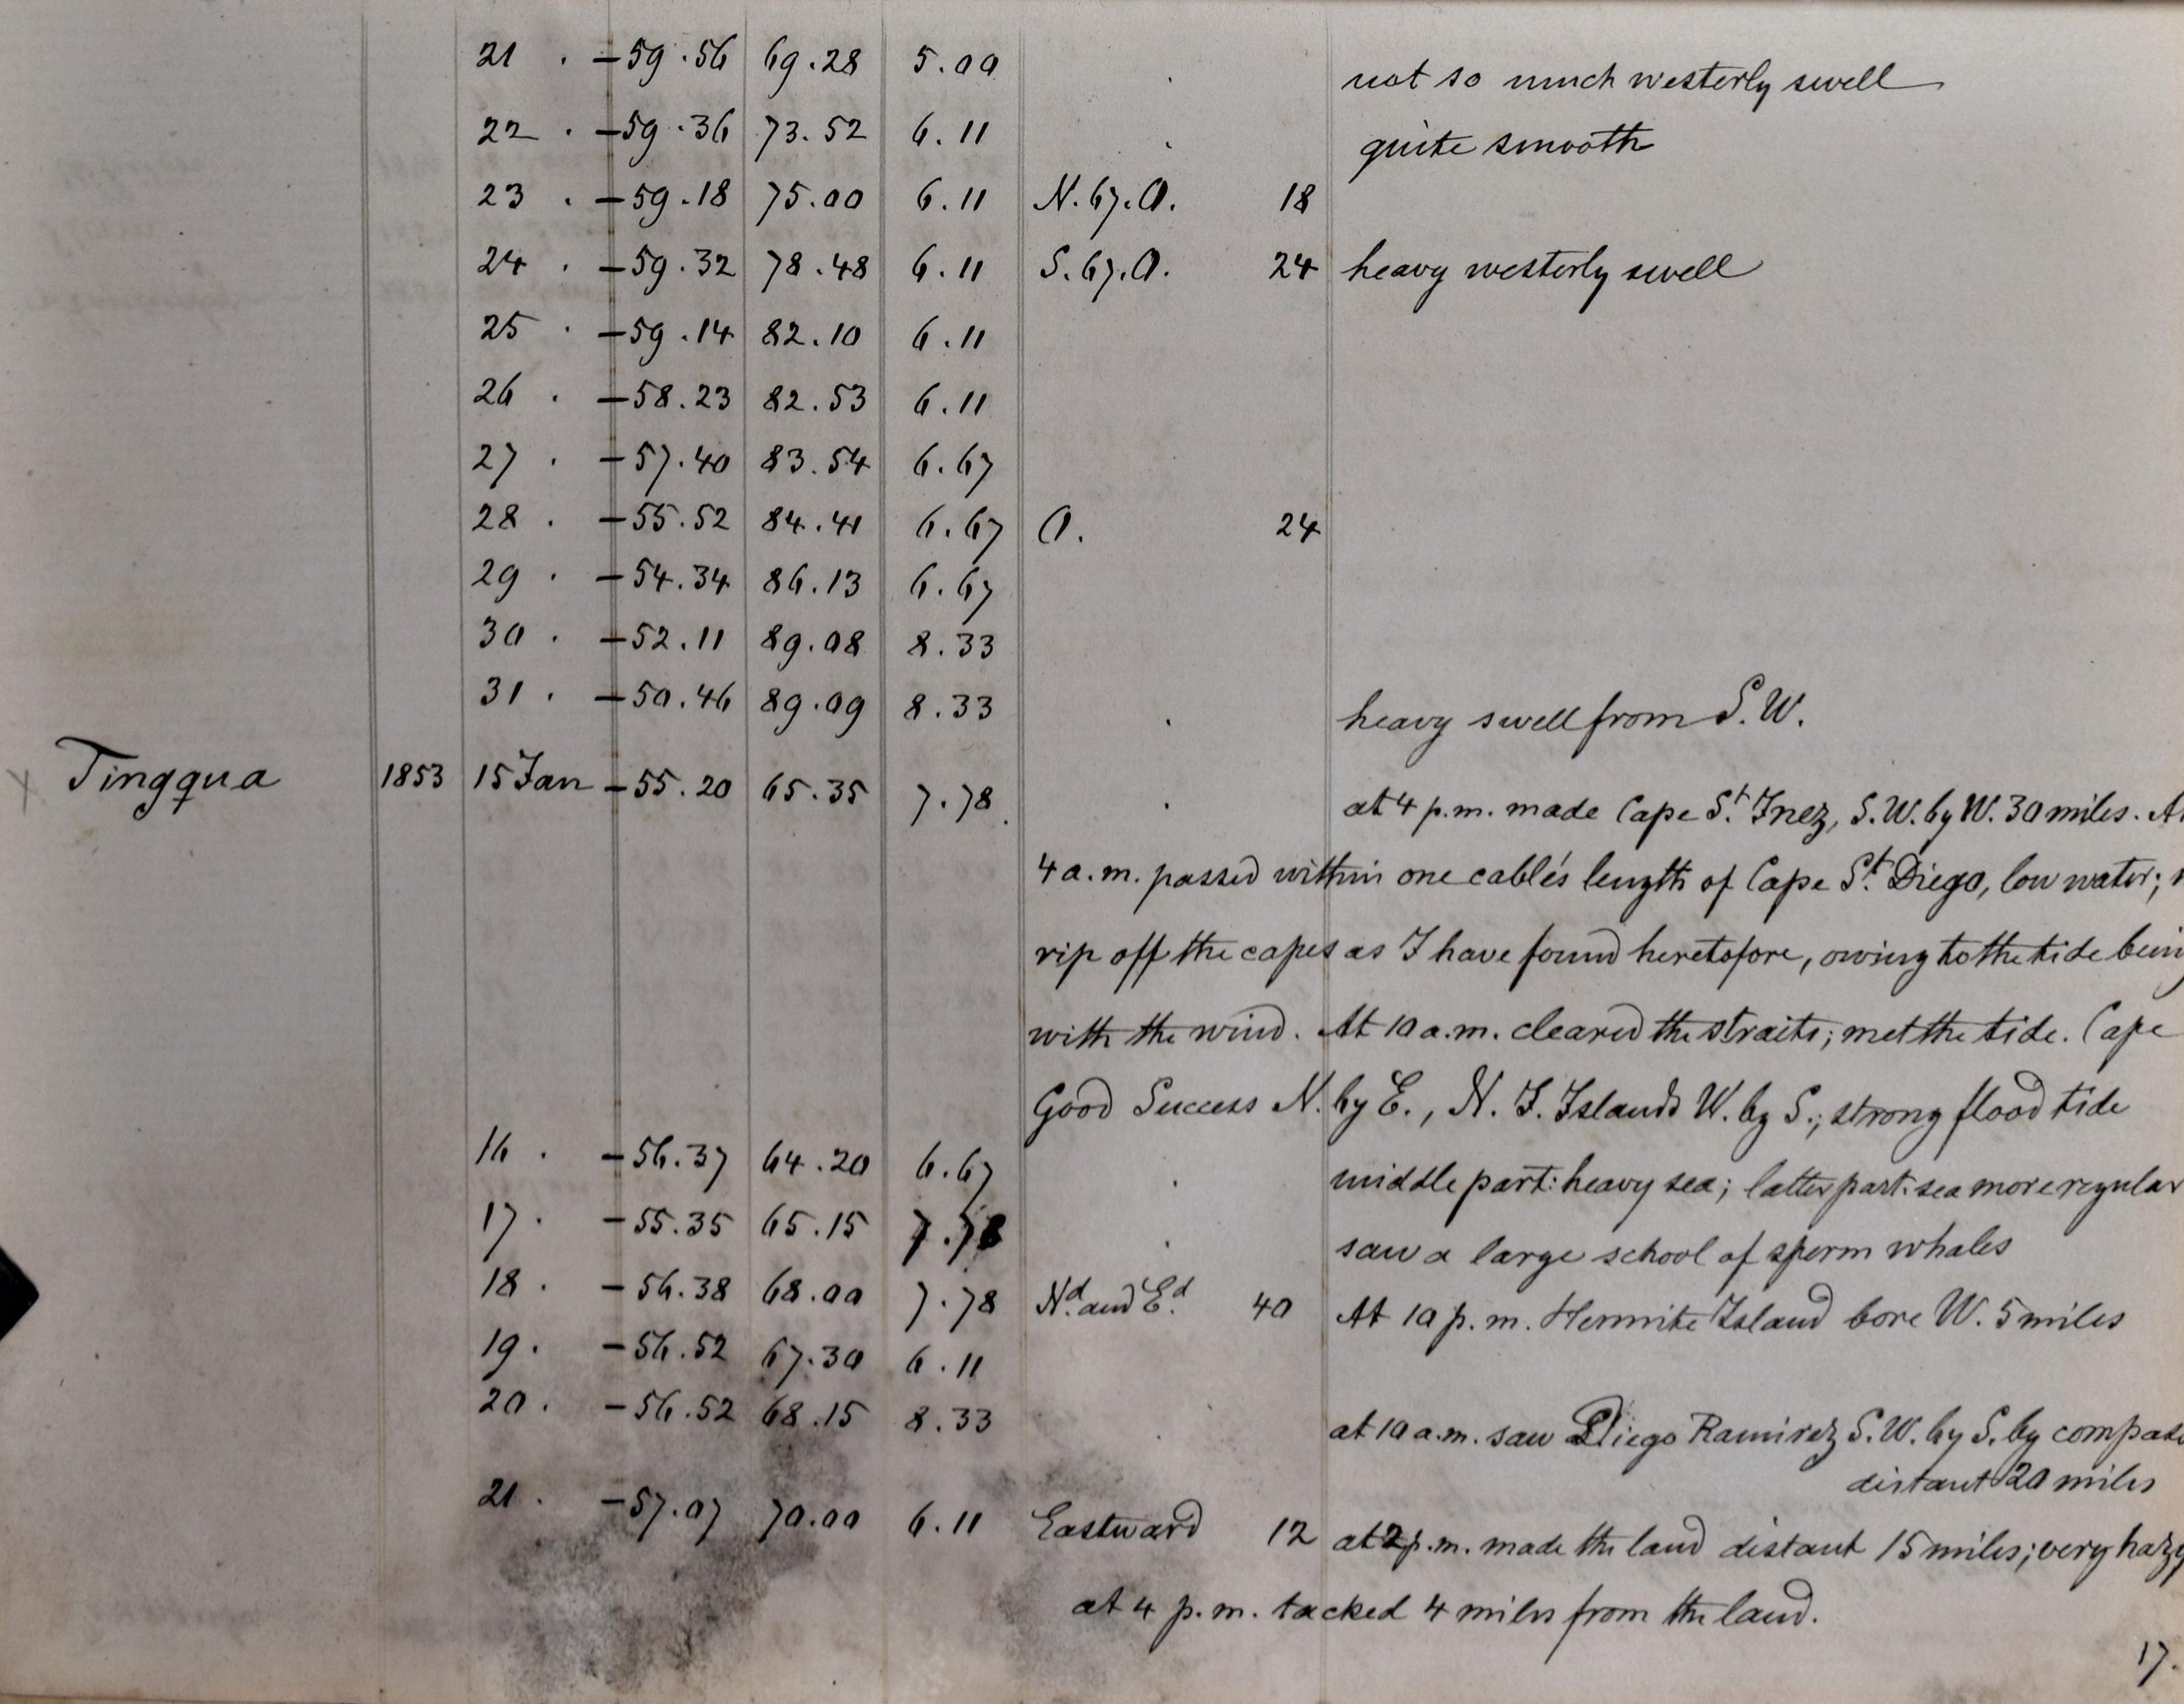 21 . -59.56 69.28 5.00 . not so much westerly swell
22 . -59.36 73.52 6.11 . quite smooth
23 . -59.18 75.00 6.11 N.67.O. 18
24 . -59.32 78.48 6.11 S.67.O. 24 heavy westerly swell
25 . -59.14 82.10 6.11
26 . -58.23 82.53 6.11
27 . -57.40 83.54 6.67
28 . -55.52 84.41 6.67 O. 24
29 . -54.34 86.13 6.67
30 . -52.11 89.08 8.33
31 . -50.46 89.09 8.33 . heavy swell from S.W.
Tingqua 1853 15 Jan -55.20 65.35 7.78 . at 4 p.m. made Cape St. Inez, S.W. by W. 30 miles. At
4 a.m. passed within one cable's length of Cape St. Diego, low water;
rip off the capes as I have found heretofore, owing to the tide being
with the wind. At 10 a.m. cleared the straits; met the tide. Cape
Good Success N. by E., N. I. Islands W. by S.; strong flood tide
16 . -56.37 64.20 6.67 . middle part: heavy sea; latter part: sea more regular
17 . -55.35 65.15 7.78 . saw a large school of sperm whales
18 . -56.38 68.00 7.78 Nd. and Ed. 40 At 10 p.m. Hermite Island bore W. 5 miles
19 . -56.52 67.30 6.11
20 . -56.52 68.15 8.33 . at 10 a.m. saw Diego Ramirez S.W. by S. by compass
distant 20 miles
21 . -57.07 70.00 6.11 Eastward 12 at 2 p.m. made the land distant 15 miles; very hazy
at 4 p.m. tacked 4 miles from the land.
17.